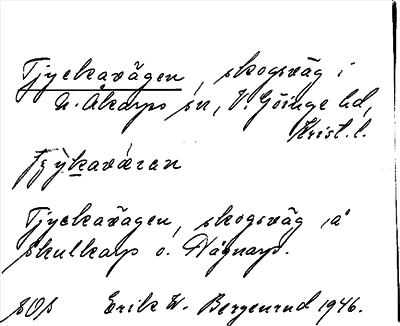 Tjyckavägen, skogsväg i
N. Åkarps sn, V. Göinge hd,
Krist. l.
Tjyckavägen, skogsväg å
Skulkarp o. Hågnarp.
SOS Erik W. Bergenrud 1946.